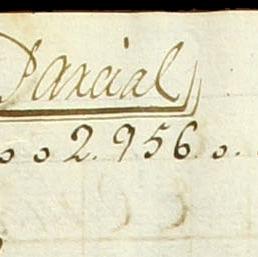 Parcial
o o 2.956 o.